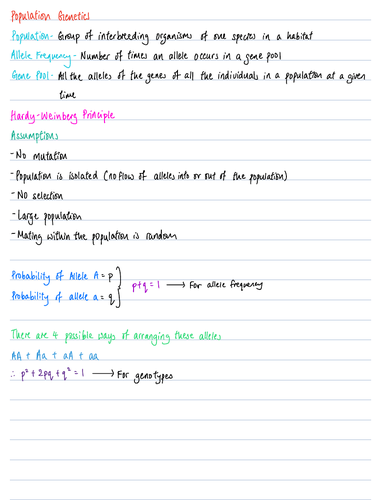 Population Genetics
Population- Group of interbreeding organisms of one species in a habitat
Allele Frequency- Number of times an allele occurs in a gene pool
Gene Pool- All the alleles of the genes of all the individuals in a population at a given
time
Hardy-Weinberg Principle
Assumptions
- No mutation
- Population is isolated (no flow of alleles into or out of the population)
- No selection
- Large population
- Mating within the population is random
Probability of Allele A = p
Probability of allele a = q
} p+q = 1 → For allele frequency
There are 4 possible ways of arranging these alleles
AA + Aa + aA + aa
∴ p² + 2pq + q² = 1 → For genotypes